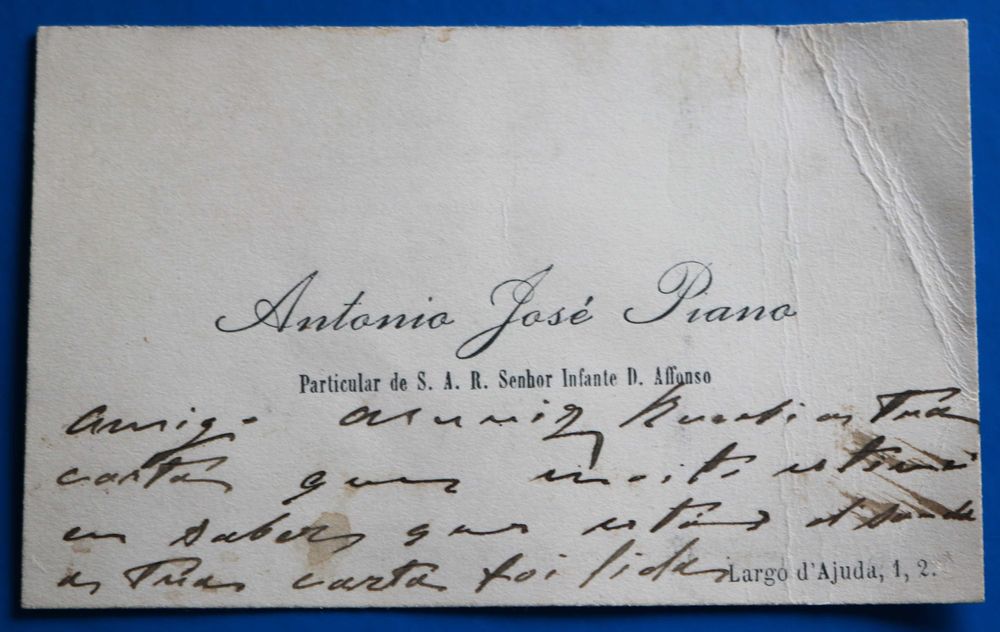 Antonio José Piano
Particular de S. A. R. Senhor Infante D. Affonso
Amigo Muniz Recebi a Tua
carta que muito estimei
em saber que estás de saude
a Tua carta foi lida
Largo d'Ajuda, 1, 2.